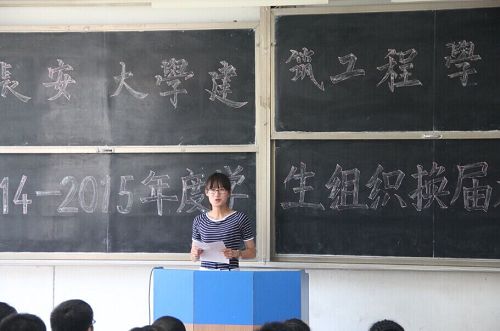 長安大學建筑工程學
14-2015年度学生组织换届